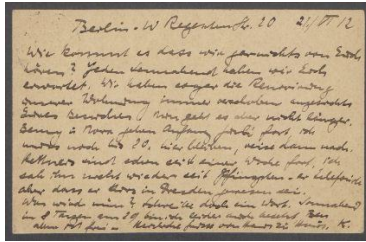 Berlin-W Regentenstr. 20 21/VI 12
Wie kommt es dass wir garnichts von Euch
hören? Jeden Sonnabend haben wir Euch
erwartet. Wir haben sogar die Renovierung
unserer Wohnung immer verschoben angesichts
Eures Besuches. Nun geht es aber nicht länger.
Benny u Nora gehen Anfang Juli fort, ich
muss noch bis 20. hier bleiben, reise dann nach.
sind schon seit einer Woche fort, ich
sah ihn nicht wieder seit Pfingsten - er telefonierte
aber dass er in Dresden gewesen sei.
Was wird nun? Schreibe doch ein Wort. Sonnabend
in 8 Tagen, am 29, bin ich leider auch besetzt. Bis
dahin frei - Herzliche Grüsse von Haus zu Haus. K.